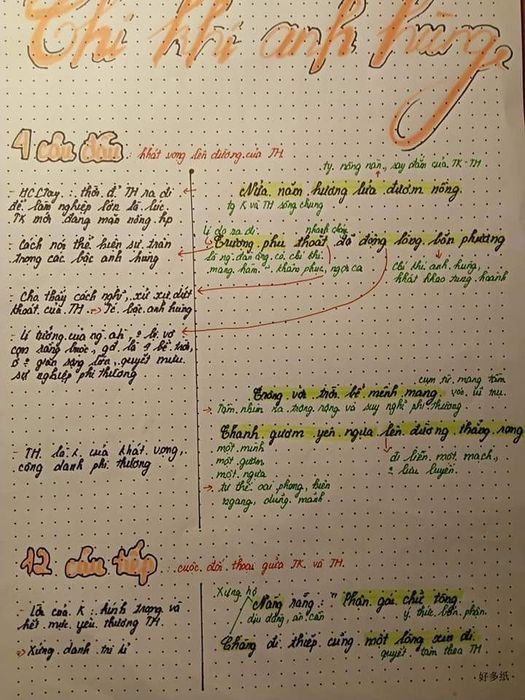 Chí khí anh hùng
4 câu đầu : khát vọng lên đường của TH
ty. nồng nàn, say đắm của TK - TH.
- HCCTay : thời để TH ra đi
để làm nghiệp lớn là lúc
TK mới đang mặn nồng hp
Nửa năm hương lửa đương nồng.
ty K và TH sống chung
lí do ra đi
nhanh chóng
- Cách nói thể hiện sự trân
trọng các bậc anh hùng
Trượng phu thoắt đã động lòng bốn phương
là ng. đàn ông có chí khí
mang hàm " khâm phục, ngợi ca
Chí khí anh hùng,
khát khao tung hoành
- Cho thấy cách nghĩ, xử sự dứt
khoát của TH => Tc bậc anh hùng
- Lí tưởng của ng. ah, ? bị vợ
con ràng buộc, gđ là ? bé trời,
sự nghiệp phi thường
cụm từ mang tầm
Trông vời trời bể mênh mang
với vũ trụ.
Tầm nhìn ra trông rộng và suy nghĩ phi thường.
Thanh gươm yên ngựa lên đường thẳng rong
TH là K của khát vọng,
công danh phi thường
một mình
một gươm
một ngựa
đi liền một mạch,
? lưu luyến.
-> tư thế oai phong, hiên
ngang, dũng mãnh
12 câu tiếp : cuộc đối thoại giữa TK và TH.
Xưng hô
- Lời của K : kính trọng và
hết mực yêu thương TH.
Nàng rằng : " Phận gái chữ tòng.
dịu dàng, ân cần
ý thức bổn phận.
=> Xứng danh tri kỉ
Chàng đi thiếp cũng một lòng xin đi
quyết tâm theo TH
好多纸